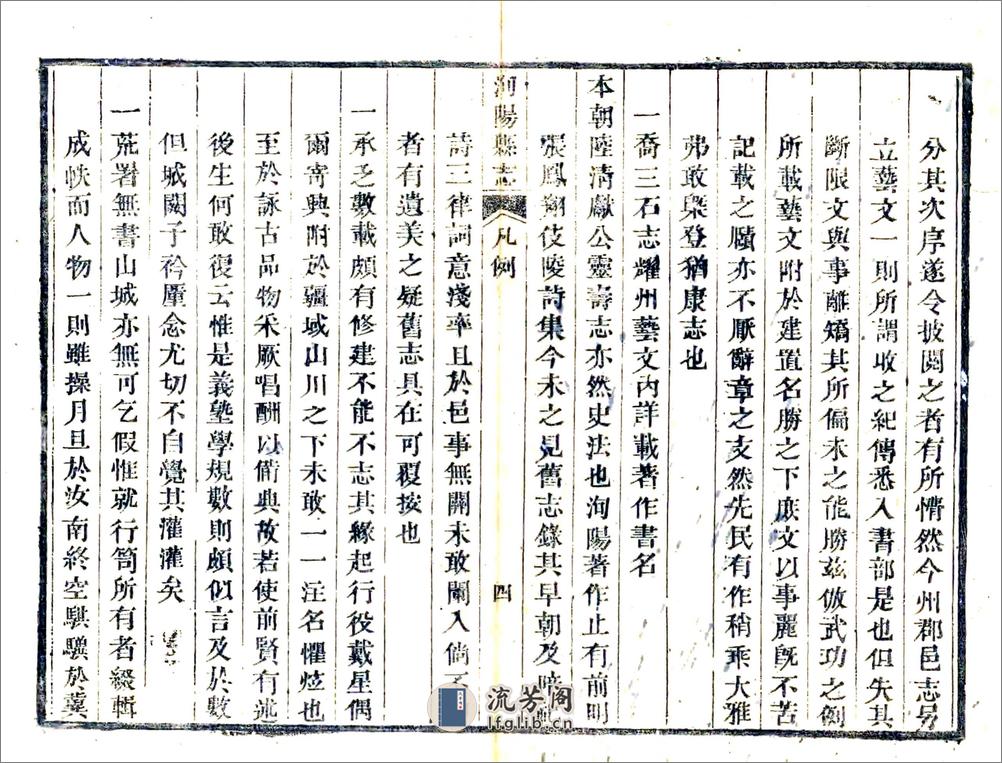 分其次序遂令披閱之者有所懵然今州郡邑志另
立藝文一則所謂收之紀傳悉入書部是也但失其
斷限文與事離矯其所偏未之能勝茲倣武功之例
所載藝文附於建置名勝之下庶文以事麗旣不苦
記載之賾亦不厭辭章之支然先民有作稍乖大雅
弗敢槩登猶康志也
一喬三石志耀州藝文內詳載著作書名
本朝陸清獻公靈壽志亦然史法也洵陽著作止有前明
張鳳翔伎陵詩集今未之見舊志錄其早朝及
洵陽縣志 凡例 四
詩三律詞意淺率且於邑事無關未敢闌入倘
者有遺美之疑舊志具在可覆按也
一承乏數載頗有修建不能不志其緣起行役戴星偶
爾寄興附於疆域山川之下未敢一一注名懼炫也
至於詠古品物釆厥唱酬以備典故若使前賢有述
後生何敢復云惟是義塾學規數則頗似言及於數
但城闕子衿厪念尤切不自覺其灌灌矣
一荒署無書山城亦無可乞假惟就行笥所有者綴輯
成帙而人物一則雖操月旦於汝南終空騏驥於冀
流芳阁
lfglib.cn